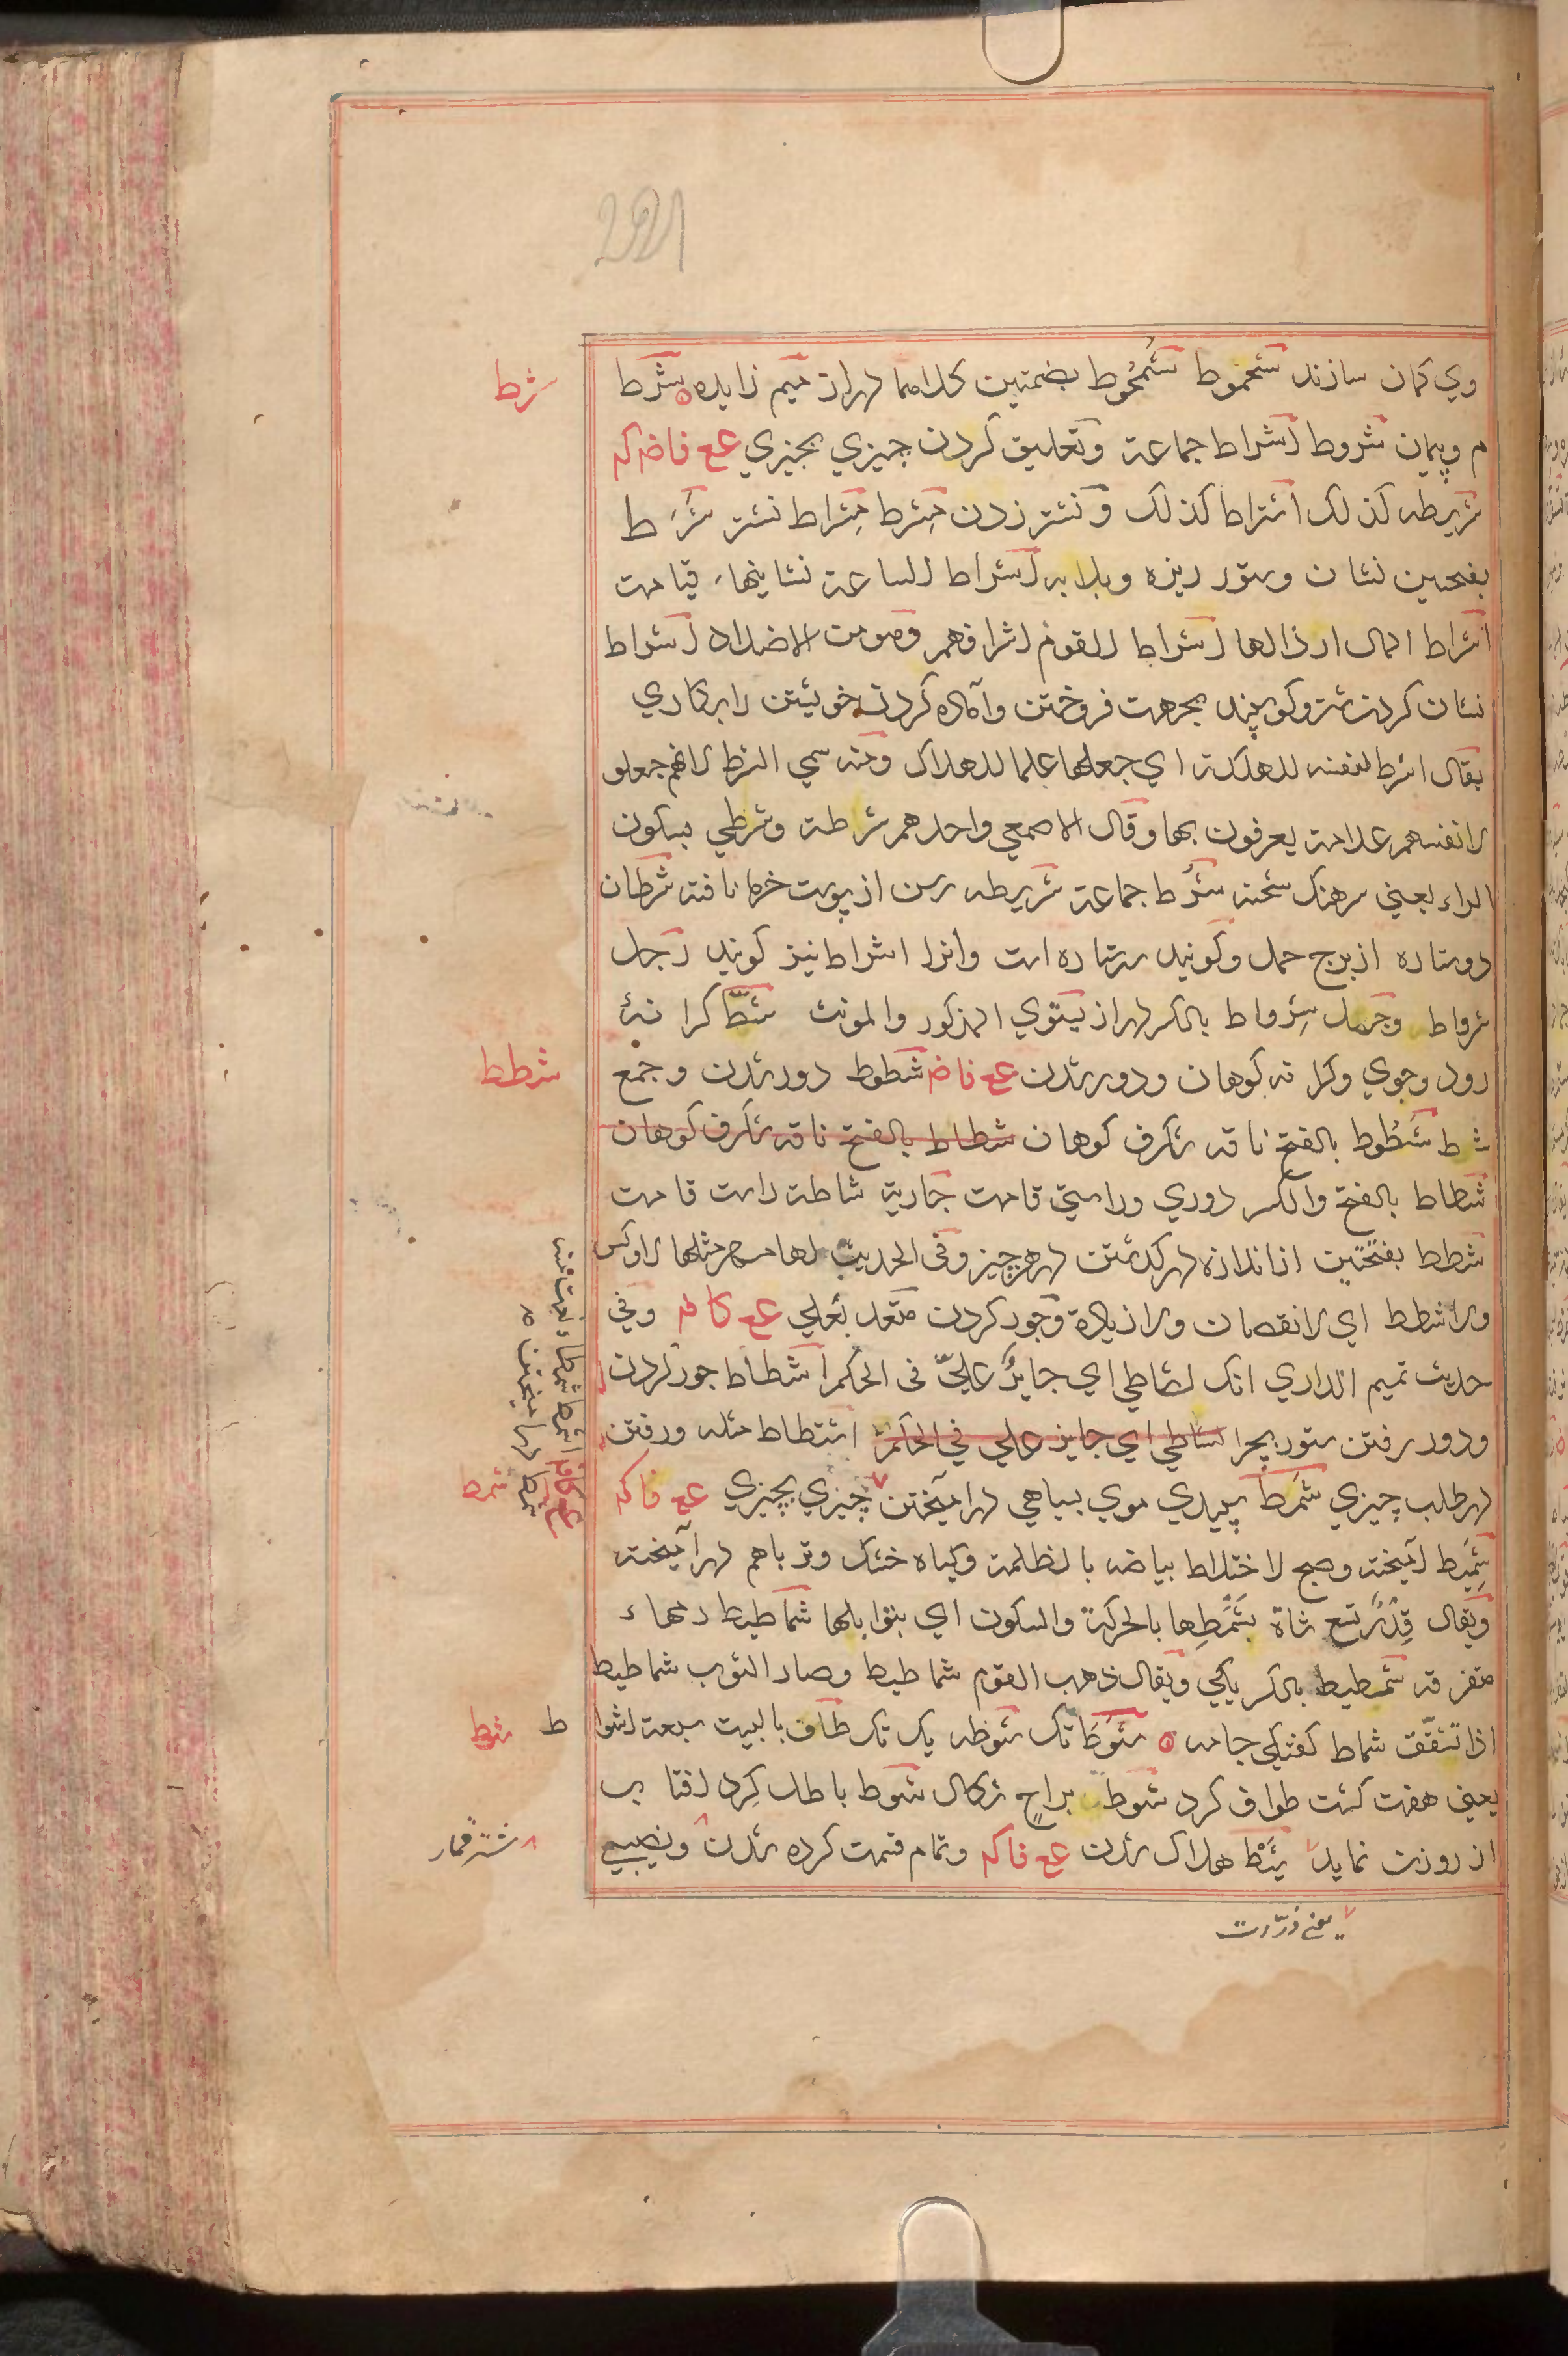 وي كمان سازند شحموط شُمحُوط بضمتين كلاهما دراز ميم زايده شرط
م وپيمان شروط اشراط جماعة وتعليق كردن چيزي بچيزي عع فاضكه
شريطه كذلك اشتراط كذلك ونشتر زدن مِشرط مِشراط نشتر شَرَط
بفتحين نشان وستور ريزه وبلايه اشراط الساعة نشانيهاء قيامت
اشراط المال ارذالها اشراط القوم اشرافهم وهو من الاضداد اشراط
نشان كردن شتر وكوسپند بجهت فروختن وآماده كردن خويشتن را بركاري
يقال اشرط نفسه للهلكة اي جعلها علما للهلاك ومنه سمي الشرط لانهم جعلو
لانفسهم علامة يعرفون بها وقال الاصمعي واحدهم شرطة وشرطي بسكون
الراء يعني سرهنك شحنه شُرط جماعة شريطه رسن از پوست خرما بافته شرطان
دوستاره از برج حمل وكويند سه ستاره است وآنرا اشراط نيز كويند رجل
شرواط وجمل شِرواط بالكسر دراز يستوي المذكور والمونث شطّ كرانهٔ
رود وجوي وكرانه كوهان ودور شدن عع فاض شطوط دور شدن وجمع
شط شَطُوط بالفتح ناقه شكرف كوهان شطاط بالفتح ناقه شكرف كوهان
شطاط بالفتح والكسر دوري وراستي قامت جارية شاطة راست قامت
شطط بفتحتين از اندازه در كذشتن در هر چيز وفي الحديث لها مهر مثلها لا وكس
ولا شطط اي لا نقصان ولا زيادة وجور كردن متعد بعلي عع كافه وفي
حديث تميم الداري انك لشاطي اي جايرٌ عليّ في الحكم اشطاط جور كردن
ودور رفتن ستور بچرا لشاطي اي جاير علي في الحكم اشتطاط مثله ورفتن
در طلب چيزي شمَط سپيدي موي بسياهي در آميختن چيزي بچيزي عع فاكه
شَمِيط آميخته وصبح لاختلاط بياضه بالظلمة وكياه خشك وتر باهم در آميخته
ويقال قِدْرٌ تسع شاة بشَمْطِها بالحركة والسكون اي بتوابلها شماطيط رمهاء
متفرقه شمطيط بالكسر يكي ويقال ذهب القوم شماطيط وصار الثوب شماطيط
اذا تشقّق شماط كفشكي جامه شَوط تك شوطه يك تك طاف بالبيت سبعة اشوا ط
يعني هفت كشت طواف كرد شوط براحٍ شكال شوط باطل كرد آفتاب
از روزن نمايد شَيْط هلاك شدن عع فاكه وتمام قسمت كرده شدن ونصيبي
شرط
شطط
شمط
شوط
شتر قمار